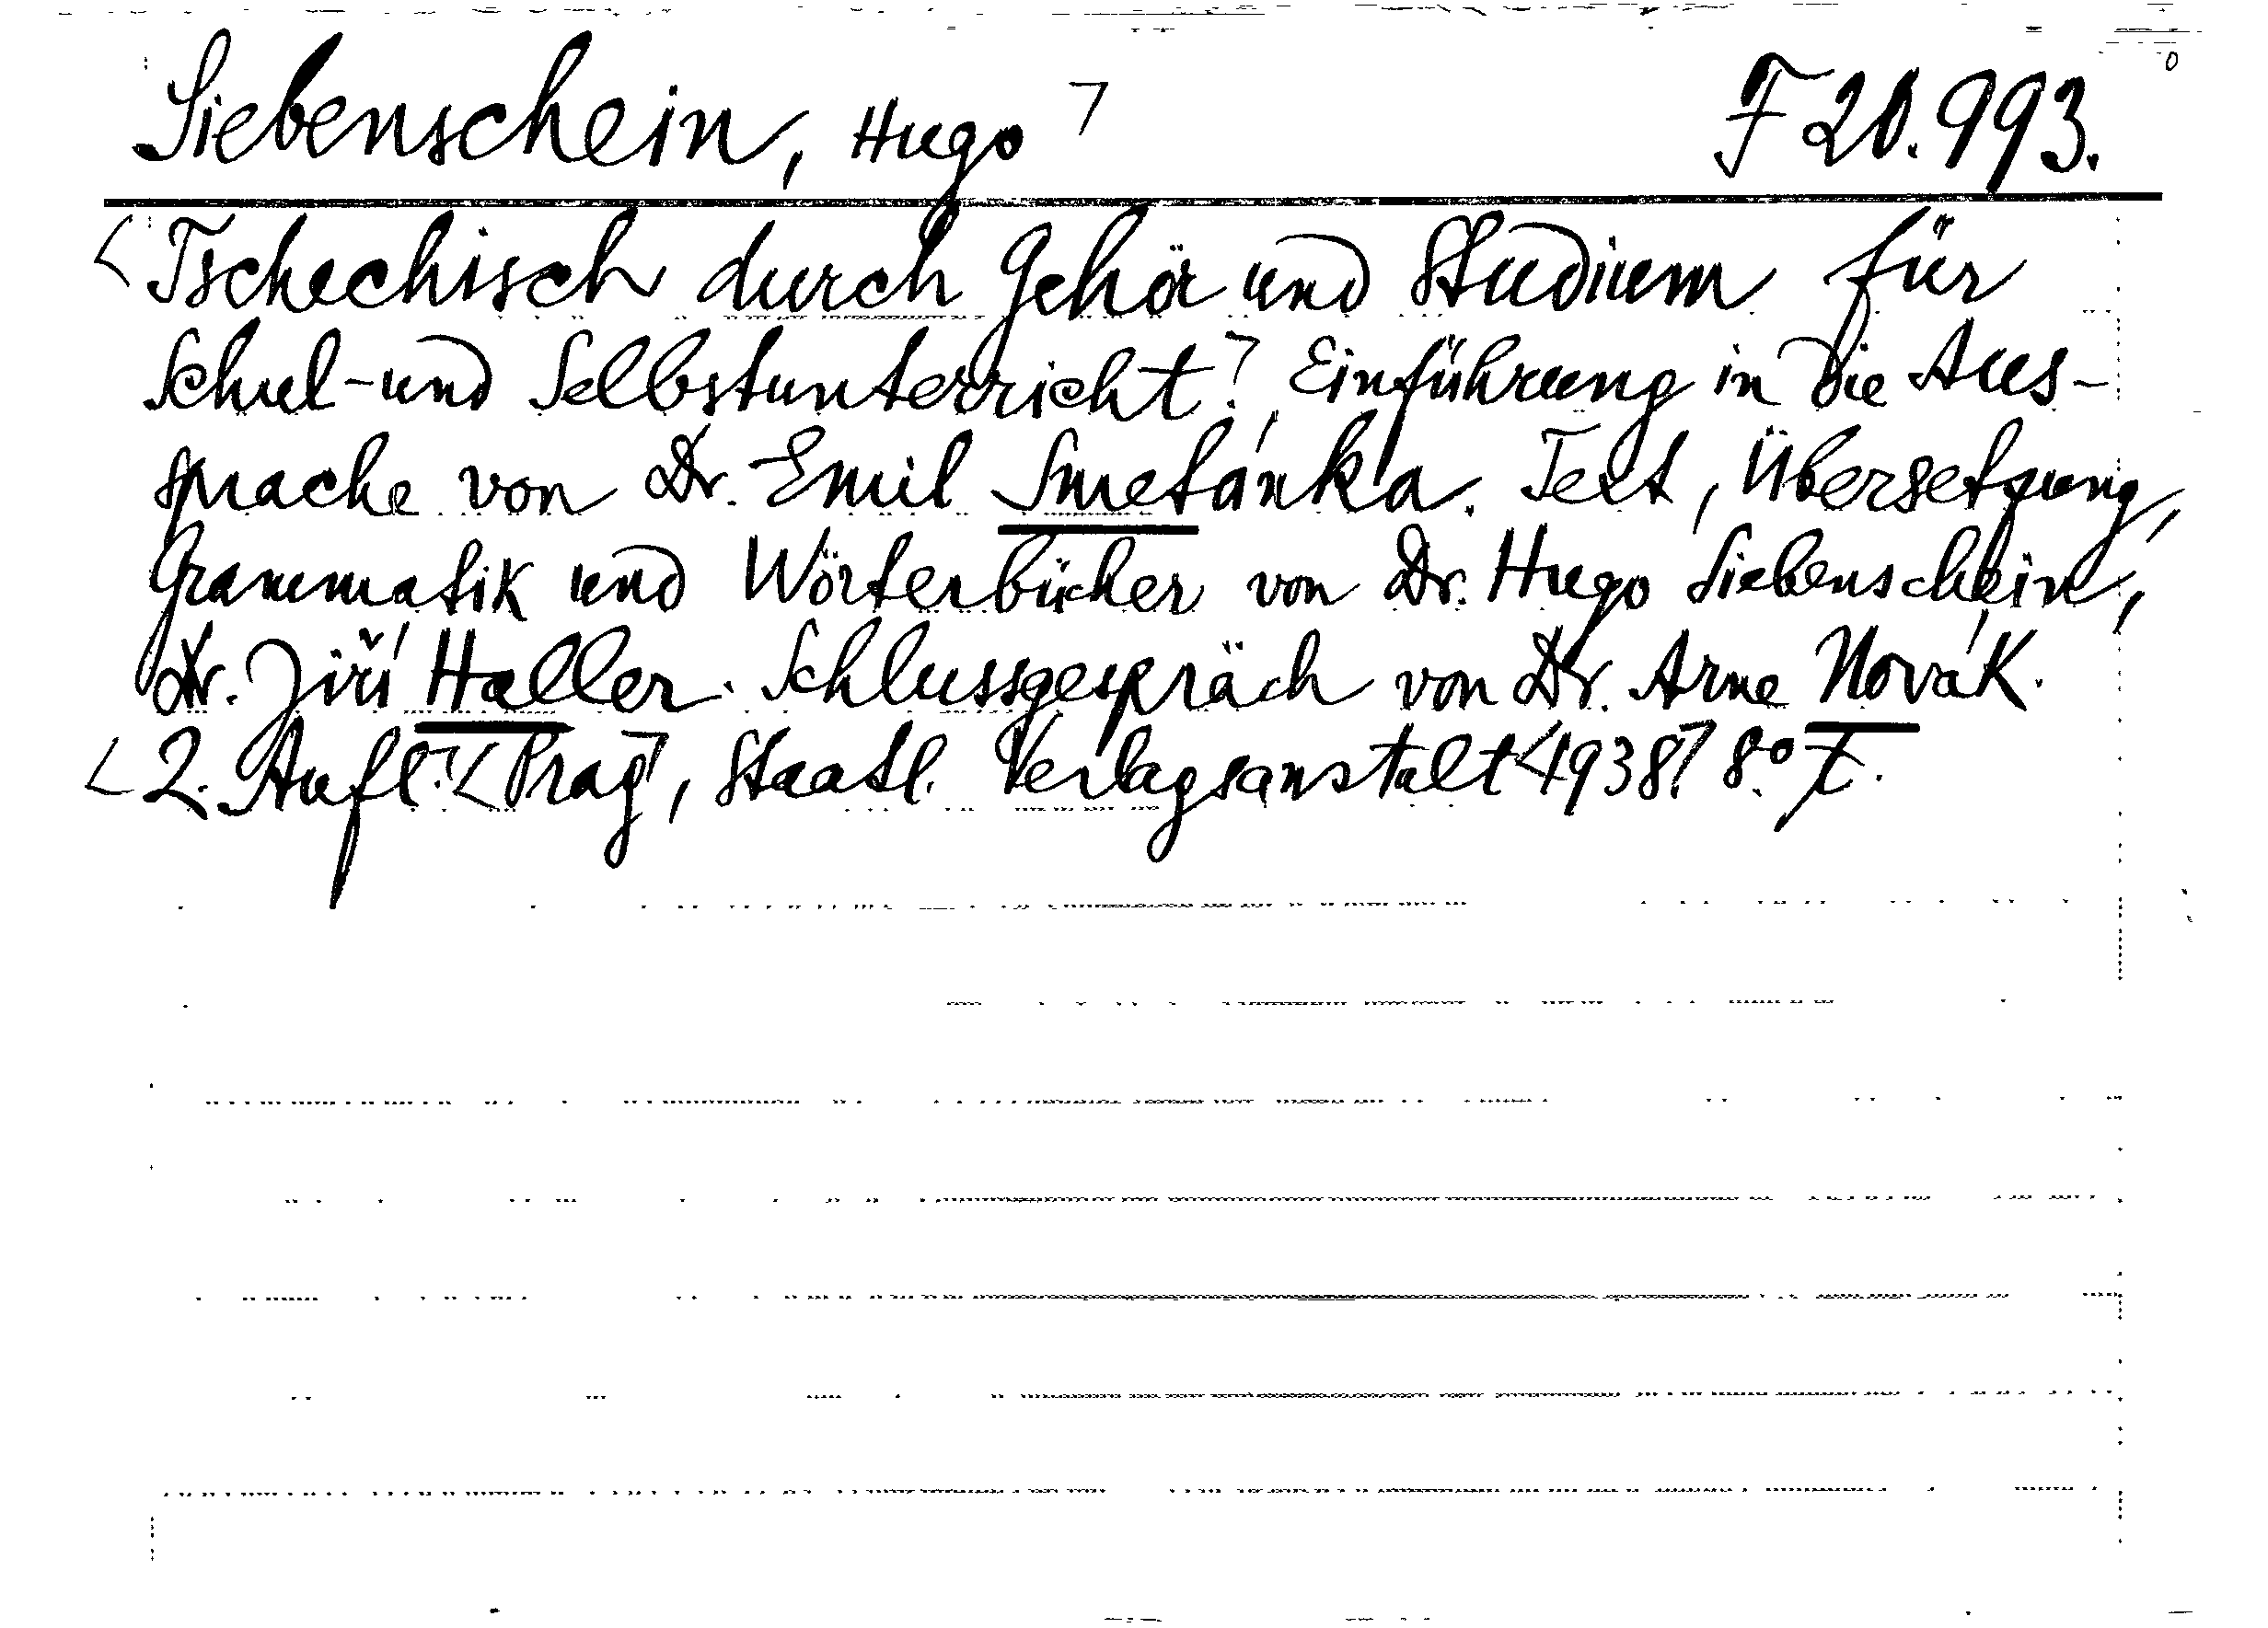 Siebenschein, Hugo ꓶ F 20.993.
<Tschechisch durch Gehör und Studium für
Schul- und Selbstunterricht.ꓶ Einführung in die Aus-
sprache von Dr. Emil Smetánka. Text, Übersetzung,
Grammatik und Wörterbücher von Dr. Hugo Siebenschein,
Dr. Jiří Haller. Schlussgespräch von Dr. Arne Novák.
<2. Aufl.ꓶ <Pragꓶ, Staatl. Verlagsanstalt <1938.ꓶ 8.°